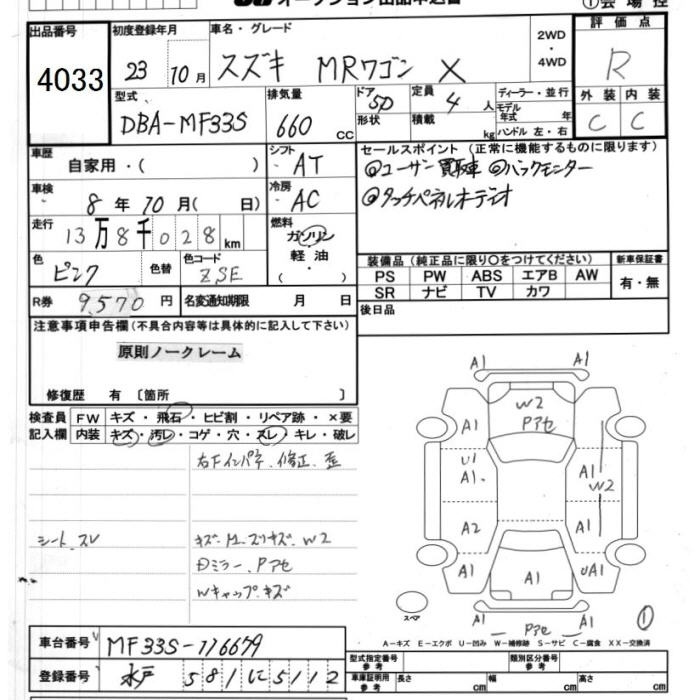 オークション出品申込書
①会場控
出品番号
4033
初度登録年月
23 10月
車名・グレード
スズキ MRワゴン X
2WD
・
4WD
評価点
R
型式
DBA-MF33S
排気量
660 cc
ドア 5D
形状
定員 4 人
積載 kg
ディーラー・並行
モデル年式 年
ハンドル 左・右
外装 内装
C C
車歴
自家用・( )
シフト
AT
セールスポイント (正常に機能するものに限ります)
◎ユーザー買取車 ◎バックモニター
◎タッチパネルオーディオ
車検
8年 10月( 日)
冷房
AC
走行
13万8千028km
燃料
ガソリン
軽油
・( )
色
ピンク
色替
色コード
ZSE
装備品(純正品に限り○をつけてください)
PS PW ABS エアB AW
SR ナビ TV カワ
新車保証書
有・無
R券
9,570円
名変通知期限 月 日
後日品
注意事項申告欄(不具合内容等は具体的に記入して下さい)
原則ノークレーム
修復歴 有 〔箇所 〕
検査員
記入欄
FW キズ・飛石・ヒビ割・リペア跡・×要
内装 キズ・汚レ・コゲ・穴・スレ・キレ・破レ
右Fインパネ、修正、歪
シートスレ
キズ、凹、スリキズ、W2
Dミラー、Pアセ
Wキャップ、キズ
A1 A1
W2
Pアセ
A1 A1
U1
A1 A1
W2
A2 A1
A1 A1 UA1
A1 Pアセ A1
スペア
①
A-キズ E-エクボ U-凹み W-補修跡 S-サビ C-腐食 XX-交換済
車台番号
MF33S-116679
登録番号
水戸 581 に 5112
型式指定番号
参考
類別区分番号
参考
車庫証明用
参考
長さ cm
幅 cm
高さ cm